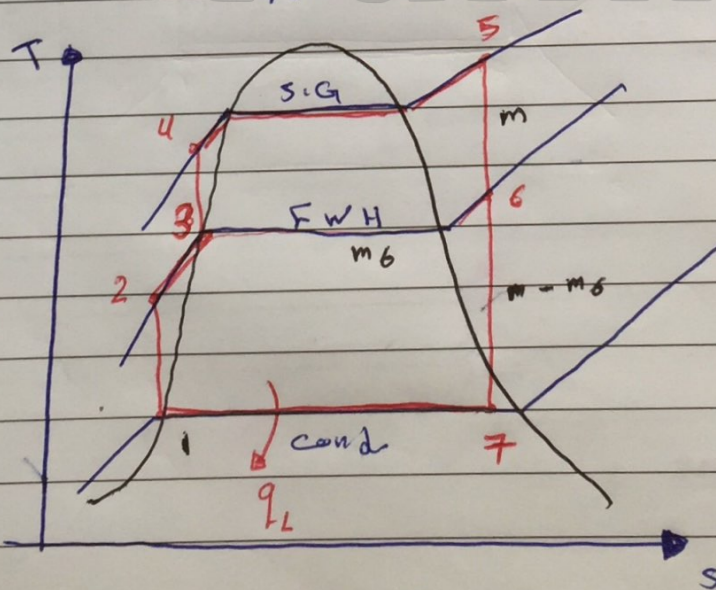 T
5
S.G
4
m
6
3
F W H
m6
2
m - m6
1
cond
7
qL
s